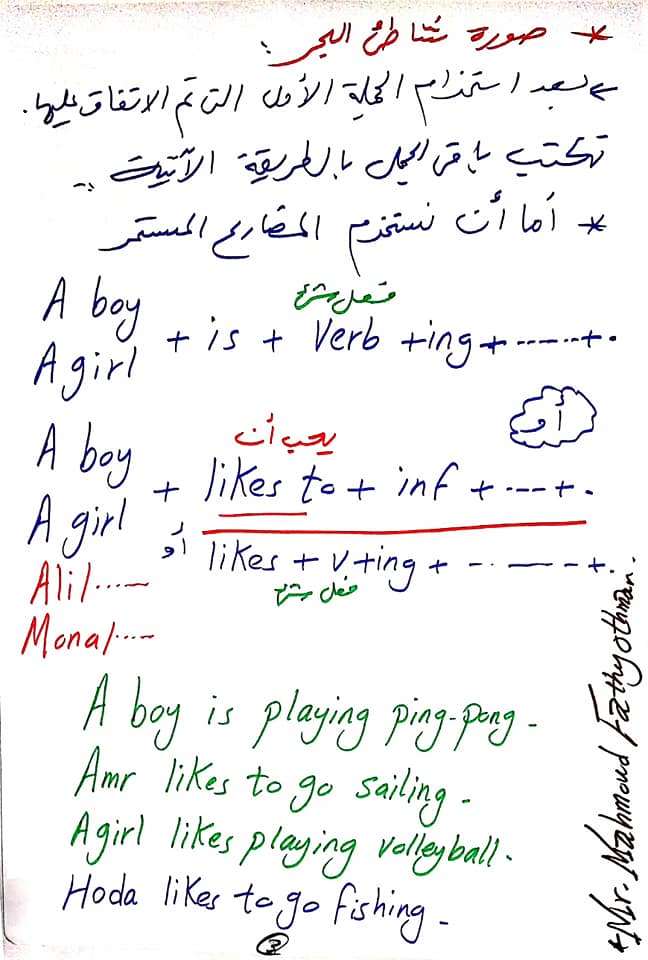 * صورة شاطئ البحر :
← بعد استخدام الجملة الأولى التى تم الاتفاق عليها.
تكتب باقى الجمل بالطريقة الآتية :-
* أما أن نستخدم المضارع المستمر
فعل شرح
A boy
A girl + is + Verb +ing + ------- + .
أو
يحب أن
A boy
A girl + likes to + inf + --- + .
أو likes + v +ing + - - - - + .
فعل شرح
Ali/....
Mona/....
A boy is playing ping-pong -
Amr likes to go sailing -
A girl likes playing volleyball.
Hoda likes to go fishing -
3
* Mr. Mahmoud Fathy othman.